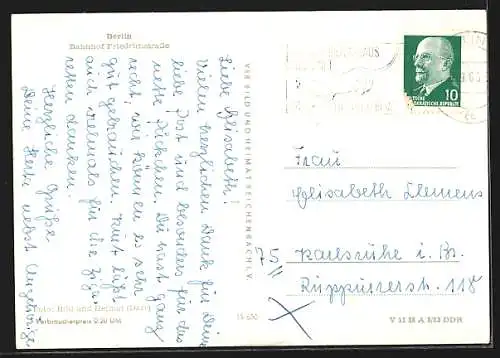 Berlin
Bahnhof Friedrichstraße
Liebe Elisabeth!
Vielen herzlichen Dank für Deine
liebe Post und besonders für das
nette Päckchen. Du hast ganz
recht, wir können es sehr
gut gebrauchen. Kurt läßt
auch vielmals für die Zigar-
retten danken.
Herzliche Grüße
Deine Herta nebst Angehörige
Foto: Bild und Heimat (Darr)
Verbraucherpreis 0,20 DM
VEB BILD UND HEIMAT REICHENBACH I. V.
15 650
10
DEUTSCHE
DEMOKRATISCHE REPUBLIK
Frau
Elisabeth Clemens
75
Karlsruhe i. B.
Rüppurrerstr. 118
V 11 28 A 1/63 DDR